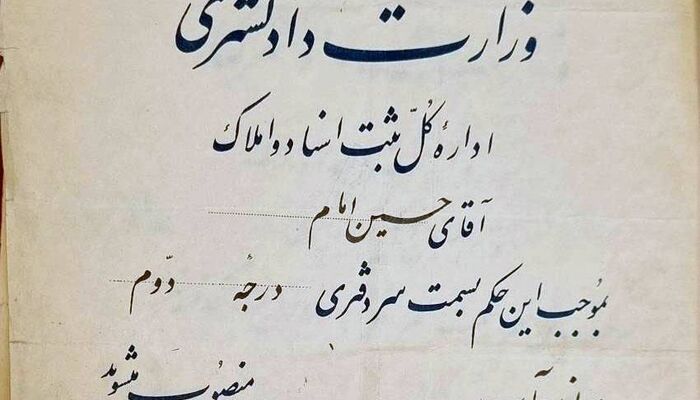 وزارت دادگستری
ادارهٔ کلّ ثبت اسناد و املاک
آقای حسین امام
بموجب این حکم بسمت سردفتری درجه دوّم
منصوب میشوید